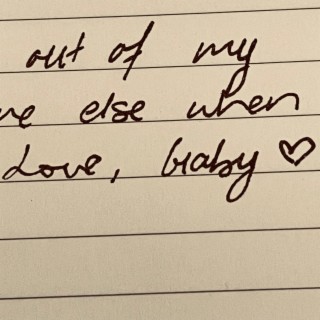 out of my
ne else when
Love, baby ♡